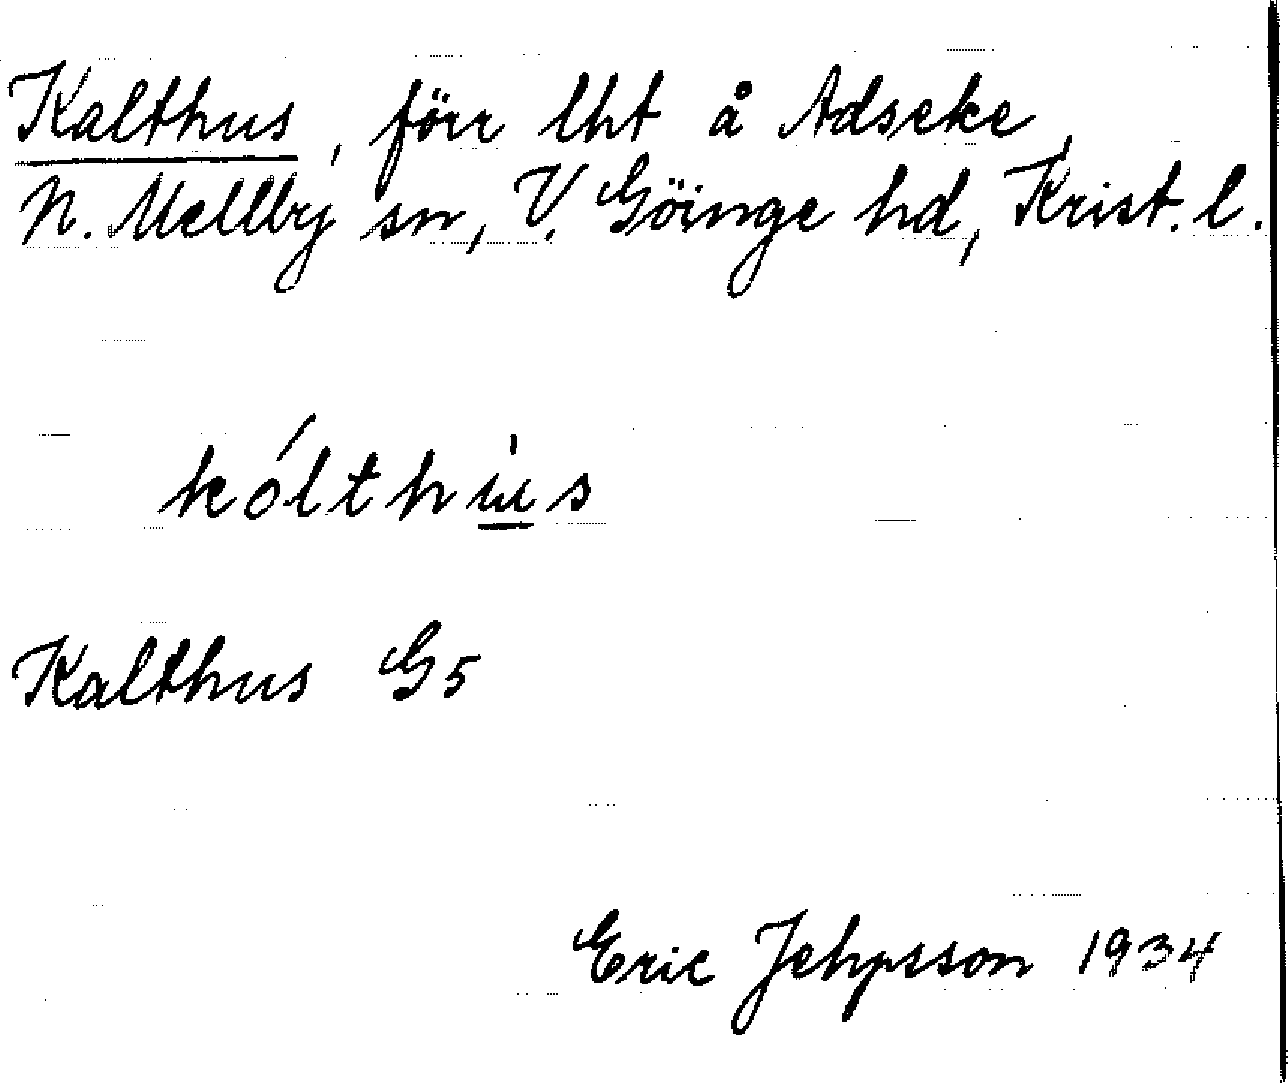 Kalthus, förr lht å Adseke,
N. Mellby sn, V. Göinge hd, Krist. l.
kólthu̲̍s
Kalthus G5
Eric Jehpsson 1934